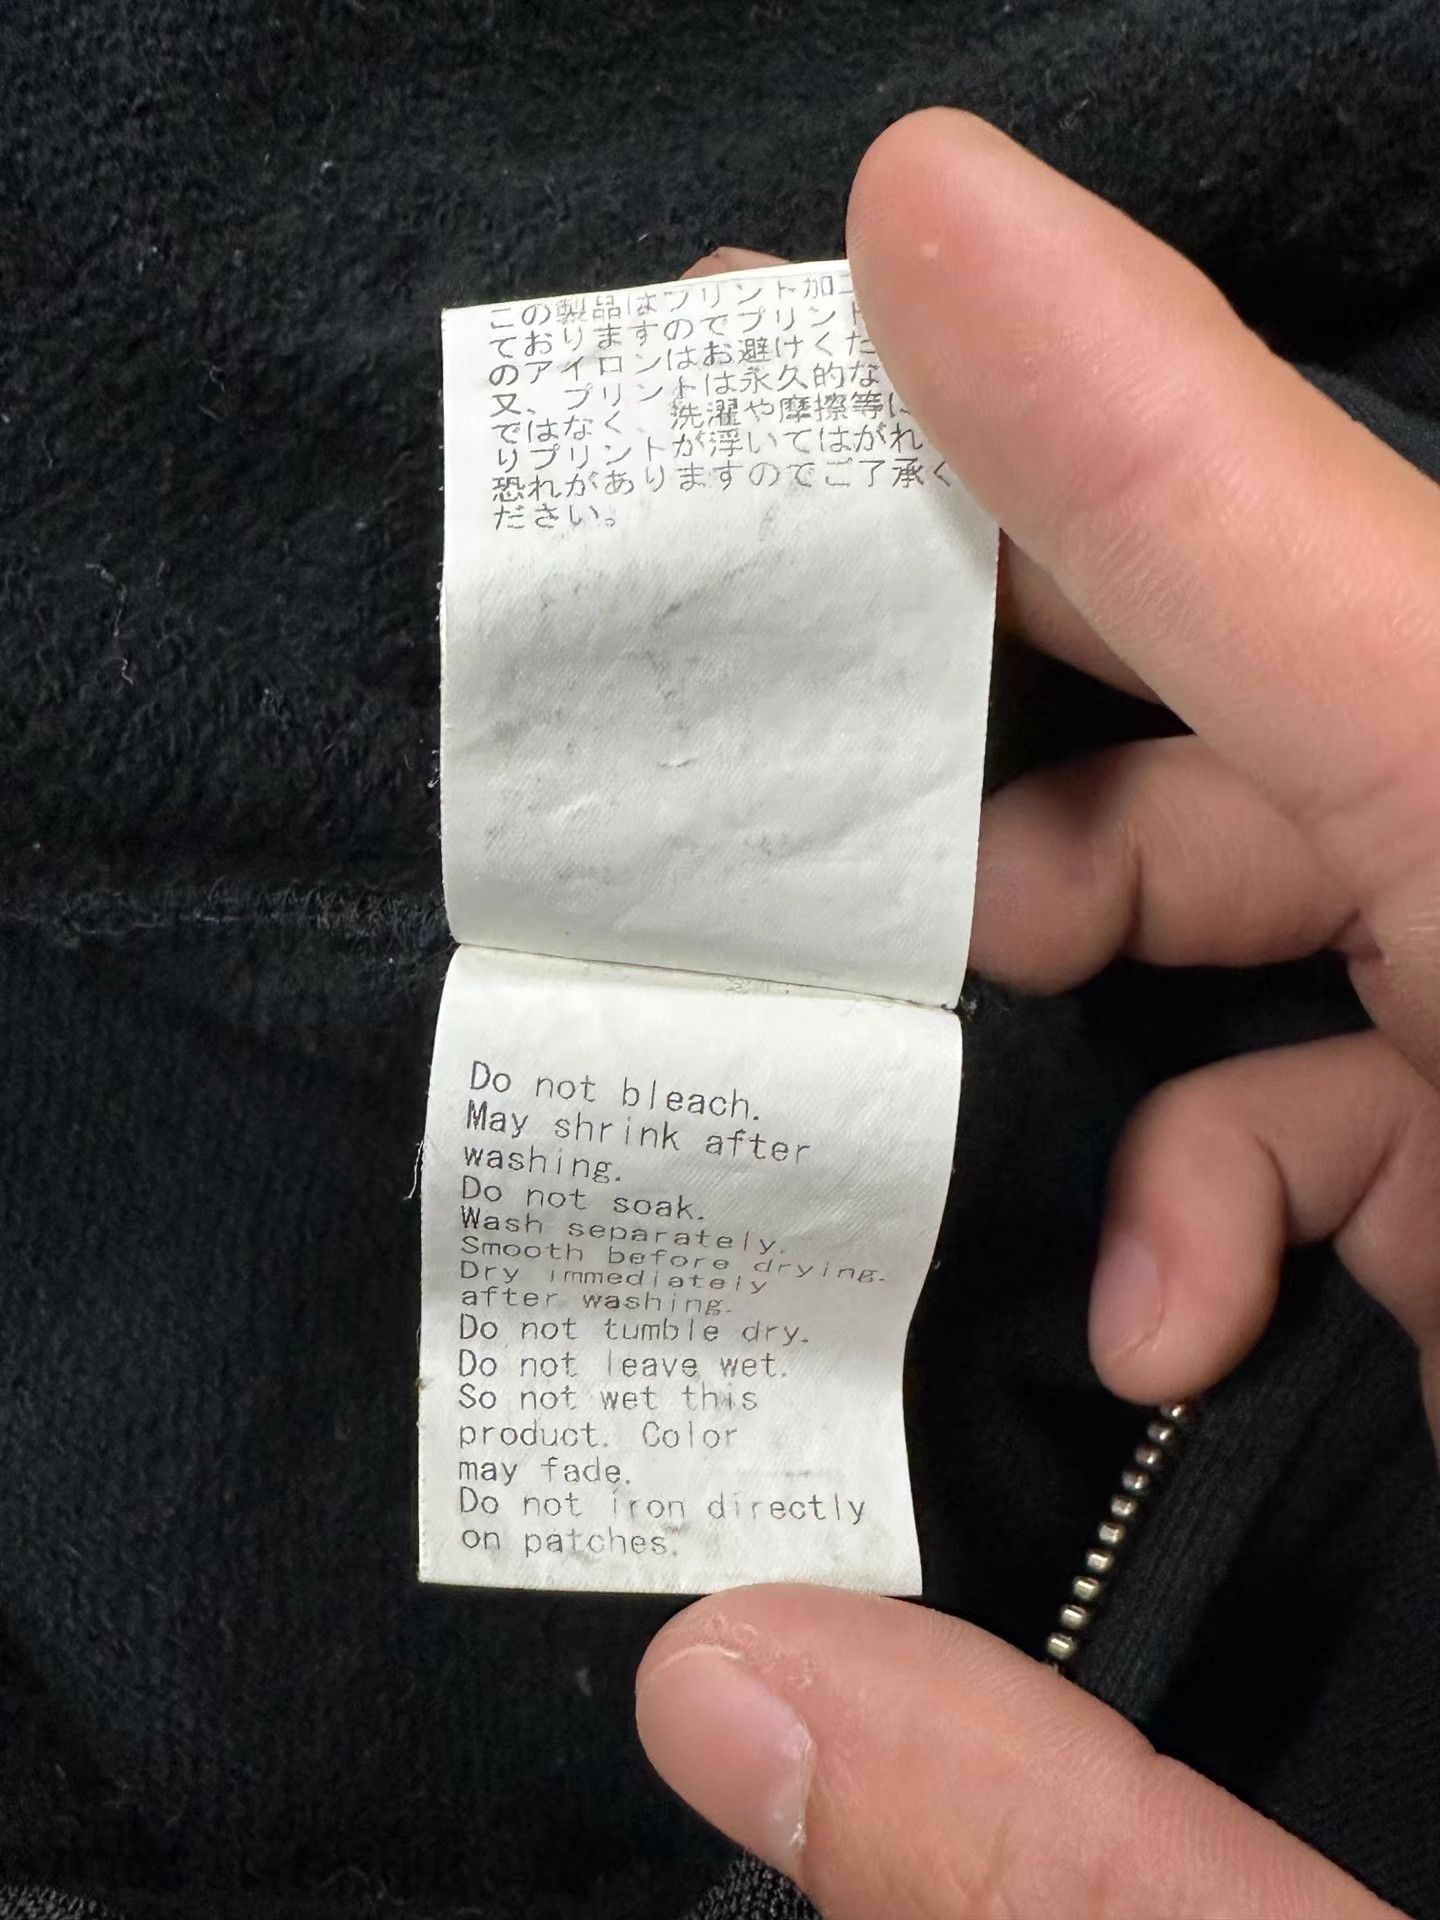 この製品はプリント加工
ておりますのでプリント
のアイロンはお避けくだ
又、プリントは永久的な
ではなく、洗濯や摩擦等に
りプリントが浮いてはがれ
恐れがありますのでご了承く
ださい。
Do not bleach.
May shrink after
washing.
Do not soak.
Wash separately.
Smooth before drying.
Dry immediately
after washing.
Do not tumble dry.
Do not leave wet.
So not wet this
product. Color
may fade.
Do not iron directly
on patches.